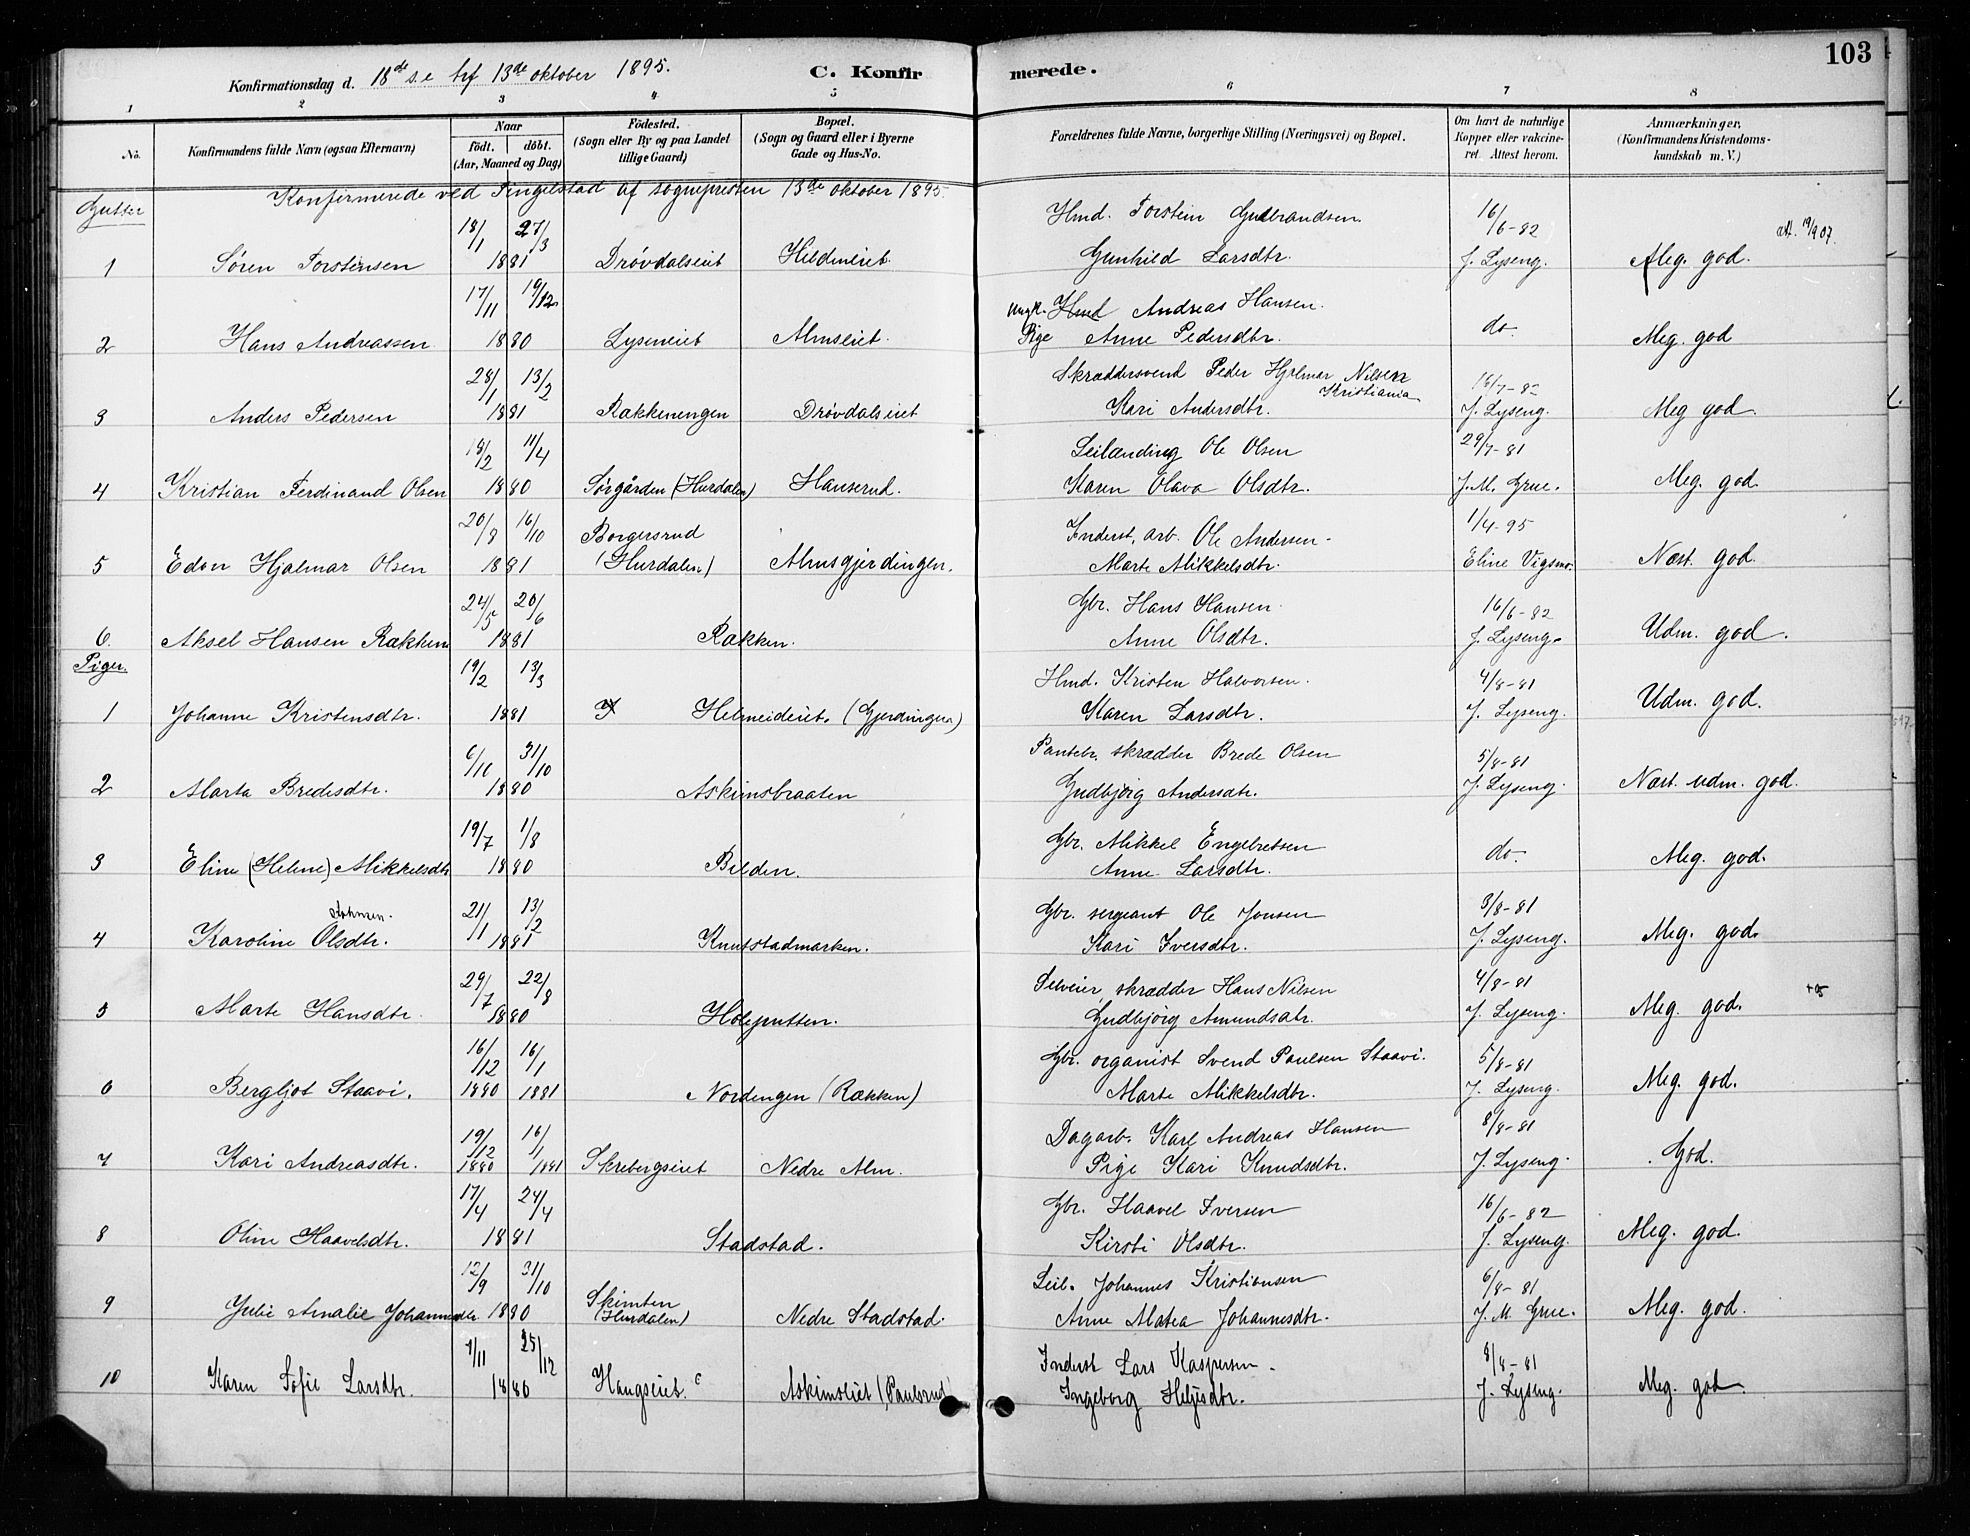 103
Konfirmationsdag d. 18de s.e. trf 13de oktober 1895.
C. Konfirmerede.
1 2 3 4 5 6 7 8
No. Konfirmandens fulde Navn (ogsaa Efternavn) Naar födt. döbt. (Aar, Maaned og Dag) Födested. (Sogn eller By og paa Landet tillige Gaard) Bopæl. (Sogn og Gaard eller i Byerne Gade og Hus-No. Forældrenes fulde Navne, borgerlige Stilling (Næringsvei) og Bopæl. Om havt de naturlige Kopper eller vakcineret. Attest herom. Anmærkninger, (Konfirmandens Kristendomskundskab m. V.)
Konfirmerede ved Tingelstad af sognepresten 13de oktober 1895.
Gutter
18/1 27/3 Hmd. Torstein Gulbrandsen 16/6-82 att. 19/9 07.
1 Søren Torstensen 1881 Drövdalseiet Hildeneiet. Gunhild Larsdtr. J. Lyseng. Meg. god.
17/11 19/12 Ungk. Hmd Andreas Hansen.
2 Hans Andreassen 1880 Lyseneiet Almseiet. Pige Anne Pedersdtr. do. Meg. god
28/1 13/2 Skræddersvend Peder Hjalmar Nilsen Kristiania 16/7-82
3 Anders Pedersen 1881 Rækkenengen Drövdalseiet Kari Andersdtr. J. Lyseng. Meg god.
18/2 11/4 Leilænding Ole Olsen 29/7-81
4 Kristian Ferdinand Olsen 1880 Sörgården (Hurdalen) Hanserud. Karen Olava Olsdtr. J. M. Grue. Meg. god.
20/8 16/10 Borgersrud Inderst, arb. Ole Andersen 1/4-95
5 Edon Hjalmar Olsen 1881 (Hurdalen) Almsgjerdingen. Marte Mikkelsdtr. Eline Vigsmo. Næst. god.
24/5 20/6 Gbr. Hans Hansen 16/6-82
6. Aksel Hansen Rækken 1881 Rækken. Anne Olsdtr. J. Lyseng. Udm. god.
Piger.
19/2 13/3 Hmd. Kristen Halvorsen. 4/8-81
1 Johanne Kristensdtr. 1881 Helmeideiet. (Gjerdingen) Karen Larsdtr. J. Lyseng. Udm. god.
6/10 31/10 Pantebr. skrædder Brede Olsen 5/8-81
2 Marta Bredesdtr. 1880 Askimsbraaten Gudbjörg Andersdtr. J. Lyseng. Næst. udm. god.
19/7 1/8 Gbr. Mikkel Engebretsen
3 Eline (Helene) Mikkelsdtr 1880 Bilden. Anne Larsdtr. do. Meg. god.
21/1 13/2 Gbr. sergeant Ole Jonsen 8/8-81
4 Karoline Olsdtr. 1881 Knutstadmarken. Kari Iversdtr. J. Lyseng. Meg. god.
29/7 22/8 Selveier, skrædder Hans Nilsen 4/8-81
5 Marte Hansdtr. 1880 Holeputten. Gudbjörg Amundsdtr. J. Lyseng. Meg. god.
16/12 16/1 Gbr. organist Svend Paulsen Staavi. 5/8-81
6 Bergljot Staavi. 1880 1881 Nordengen (Rækken) Marte Mikkelsdtr. J. Lyseng. Meg. god.
19/12 16/1 Dagarb. Karl Andreas Hansen 8/8-81
7 Kari Andreasdtr. 1880 1881 Skrebergseiet Nedre Alm. Pige Kari Knudsdtr. J. Lyseng. God.
17/4 24/4 Gbr. Haavel Iversen 16/6-82
8 Oline Haavelsdtr. 1881 Stadstad. Kirsti Olsdtr. J. Lyseng. Meg. god.
12/9 31/10 Skimten Leil. Johannes Kristiansen 6/8-81
9 Julie Amalie Johannesdtr 1880 (Hurdalen) Nedre Stadstad. Anne Matea Johannesdtr. J. M. Grue. Meg. god.
1/11 25/12 Inderst Lars Kaspersen 8/8-81
10 Karen Sofie Larsdtr. 1880 Haugseiet. Askimseiet (Paulsrud) Ingeborg Heljesdtr. J. Lyseng. Meg. god.